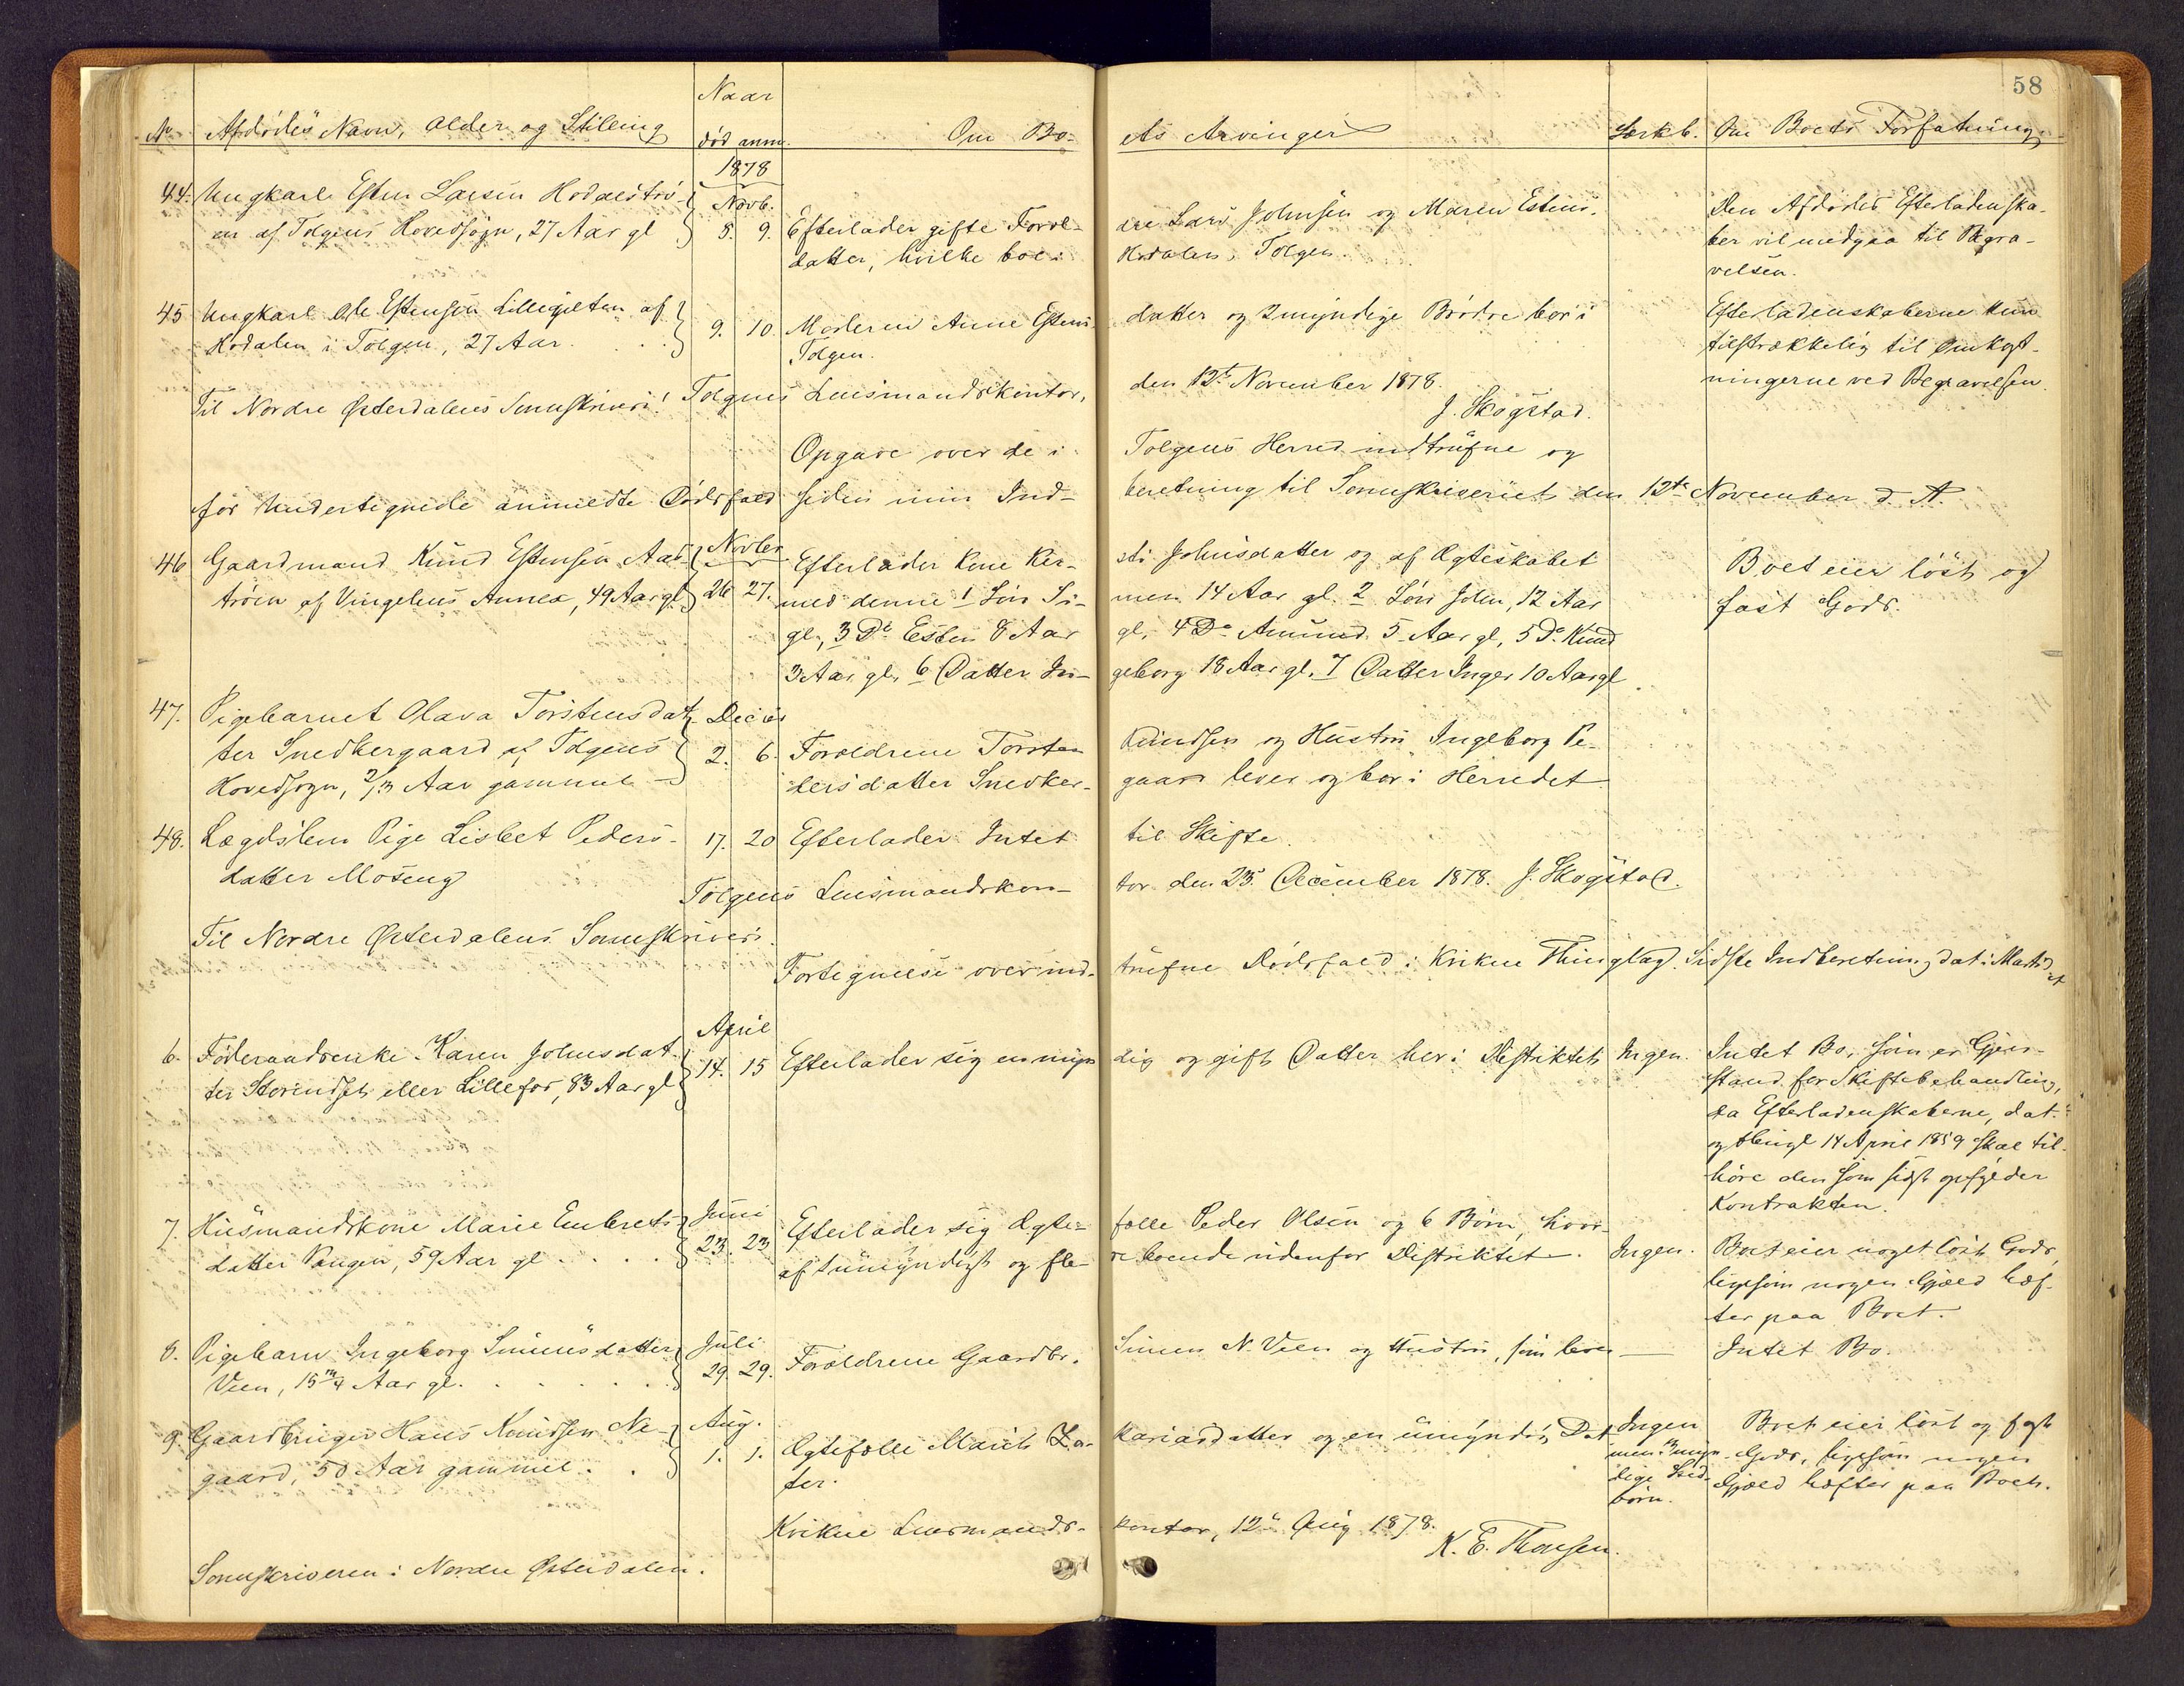 58
Naar
No Afdødes Navn, Alder og Stilling død anm. Om Bo- ets Arvinger Særkb. Om Boets Forfatning
1878
44. Ungkarl Esten Larsen Hodalstrø- Novb. Den Afdødes Efterladenska-
en af Tolgens Hovedsogn, 27 Aar gl 8. 9. Efterlader gifte Foræl- dre Lars Johnsen og Maren Estens- ber vil medgaa til Begra-
datter, hvilke boe i Hodalen, Tolgen. velsen.
45 Ungkarl Ole Estensen Lillegjelten af Efterladenskaberne kun
Hodalen i Tolgen, 27 Aar. 9. 10. Moderen Anne Estens- datter og 2 myndige Brødre bor i tilstrækkelig til Omkost-
Tolgen. ningerne ved Begravelsen.
Til Nordre Østerdalens Sorenskriveri! Tolgens Lensmandskontor, den 12te November 1878.
J. Skogstad.
Opgave over de i Tolgens Herred indtrufne og
for Undertegnede anmeldte Dødsfald siden min Ind- beretning til Sorenskriveriet den 12te November d. A.
46 Gaardmand Knud Estensen Aas- Novber Efterlader Kone Ker- sti Johnsdatter og af Ægteskabet Boet eier løst og
trøen af Vingelens Annex, 49 Aar gl. 26 27. med denne 1 Søn Si- men 14 Aar gl. 2 Søn John, 12 Aar fast Gods.
gl, 3 Do Esten 8 Aar gl, 4 Do Amund 5 Aar gl, 5 Do Knud
3 Aar gl, 6 Datter In- geborg 18 Aar gl. 7 Datter Inger 10 Aar gl
47. Pigebarnet Olava Torstensdat- Decber
ter Snedkergaard af Tolgens 2. 6. Forældrene Torsten Knudsen og Hustru Ingeborg Pe-
Hovedsogn, 2/3 Aar gammel dersdatter Snedker- gaard lever og bor i Herredet
48. Lægdslem Pige Lisbet Peders- 17. 20 Efterlader Intet til Skifte.
datter Moseng
Tolgens Lensmandskon- tor den 23 December 1878. J. Skogstad.
Til Nordre Østerdalens Sorenskriveri.
Fortegnelse over ind- trufne Dødsfald i Kvikne Thinglag. Sidste Indberetning dat:
April
6. Føderaadsenke Karen Johnsdat- 14. 15 Efterlader sig en myn- dig og gift Datter her i Distriktet Ingen. Intet Bo, som er Gjen-
ter Storindset eller Lillefos, 83 Aar gl stand for Skiftebehandling,
da Efterladenskaberne, dat.
og thingl 14 April 1859 skal til-
høre den som sidst opfylder
Kontrakten.
7. Husmandskone Marie Embrets- Juni Efterlader sig Ægte- fælle Peder Olsen og 6 Børn, hvor-
datter Vangen, 59 Aar gl 23. 23 af 1 umyndigt og fle- re boende udenfor Distriktet. Ingen. Boet eier noget løst Gods,
ligesom nogen Gjæld hæf-
ter paa Boet.
8. Pigebarn Ingeborg Simensdatter Juli
Veen, 15 Aar gl. 29. 29. Forældrene Gaardbr. Simen N. Veen og Hustru, som lever Intet Bo.
9. Gaardbruger Hans Knudsen Ne- Aug. Ægtefælle Marit Za- kariasdatter og en umyndig Dat- Ingen Boet eier løst og fast
gaard, 50 Aar gammel. 1. 1. ter. men myn- Gods, ligesom nogen
dige Sted- Gjæld hæfter paa Boet.
børn.
Kvikne Lensmands- kontor, 12te Aug 1878.
K. E. Thoresen.
Sorenskriveren i Nordre Østerdalen.